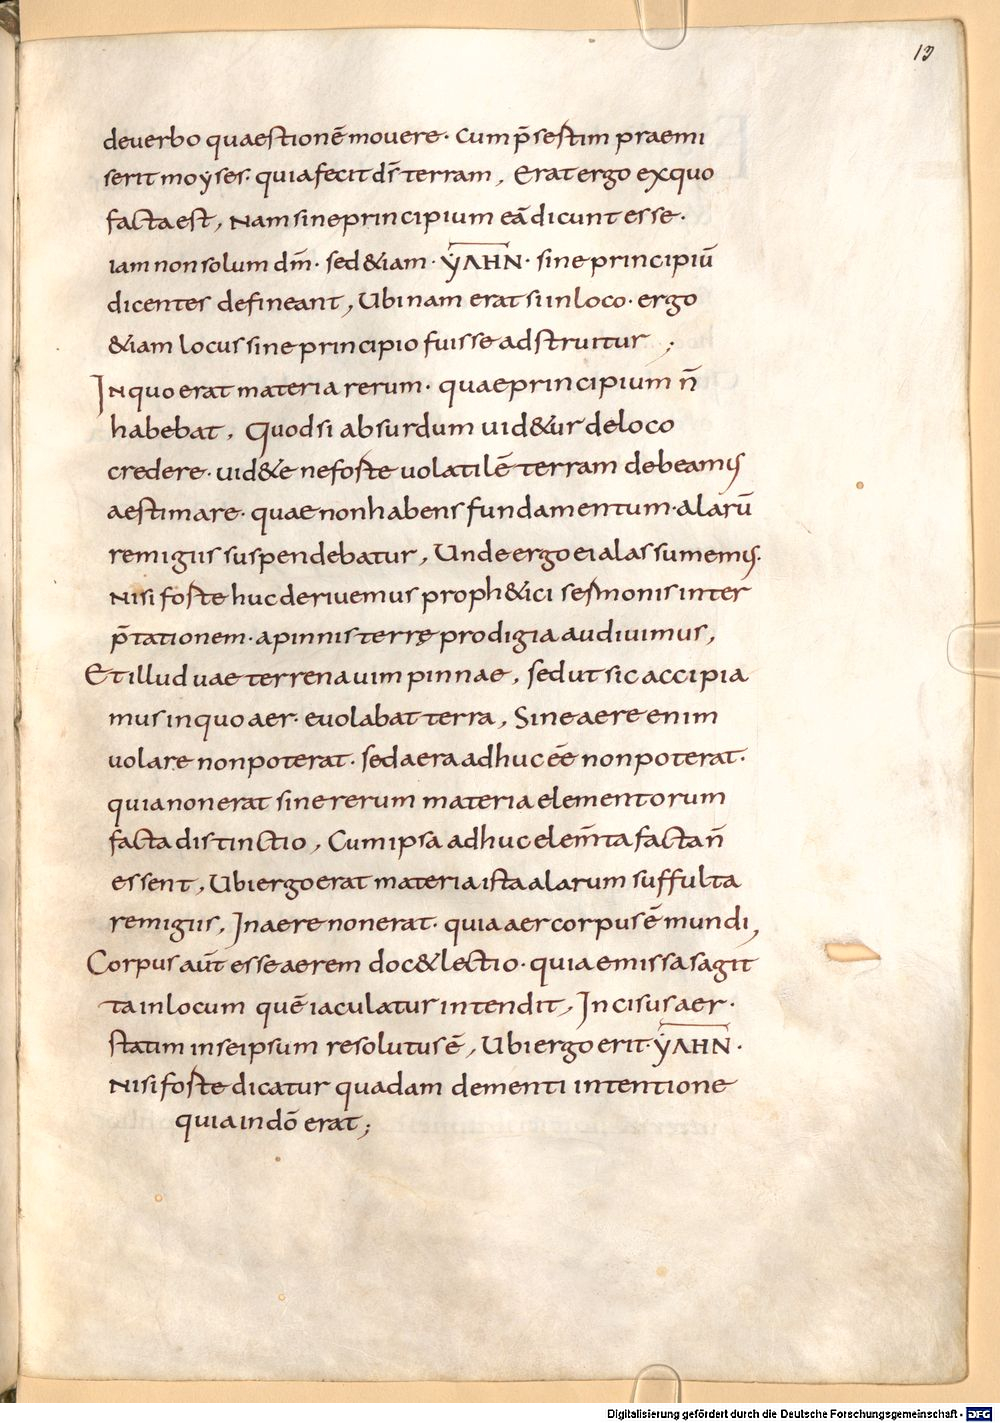 13
deuerbo quaestionē mouere. Cum p̄sestim praemi
serit moẏses. quia fecit dr̄ terram, Erat ergo exquo
facta est, Nam sine principium eā dicunt esse.
iam non solum dm̄. sed &iam. ẎΛΗΝ. sine principiū
dicentes defineant, Ubinam erat si in loco. ergo
&iam locus sine principio fuisse adstruitur ;
In quo erat materia rerum. quae principium n̄
habebat, Quod si absurdum uid&ur de loco
credere. uid&e ne foste uolatilē terram debeamus
aestimare. quae non habens fundamentum. alarū
remigiis suspendebatur, Unde ergo ei alas sumemus.
Nisi foste huc deriuemus proph&ici sermonis inter
p̄tationem. a pinnis terrę prodigia audiuimus,
Et illud uae terrena uim pinnae, sed ut sic accipia
mus in quo aer. euolabat terra, Sine aere enim
uolare non poterat. sed aera adhuc eē non poterat.
quia non erat sine rerum materia elementorum
facta distinctio, Cum ipsa adhuc elem̄ta facta n̄
essent, Ubi ergo erat materia ista alarum suffulta
remigiis, In aere non erat. quia aer corpus ē mundi,
Corpus aūt esse aerem doc& lectio. quia emissa sagit
ta in locum quē iaculatur intendit, Incisus aer.
statim in se ipsum resolutus ē, Ubi ergo erit. ẎΛΗΝ.
Nisi foste dicatur quadam dementi intentione
quia in dō erat;
Digitalisierung gefördert durch die Deutsche Forschungsgemeinschaft - DFG